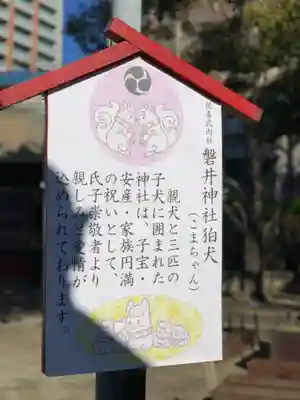 延喜式内社
磐井神社狛犬
(こまちゃん)
親犬と三匹の
子犬に囲まれた
神社は、子宝・
安産・家族円満
の祝いとして、
氏子崇敬者より
親しみと愛情が
込められております。